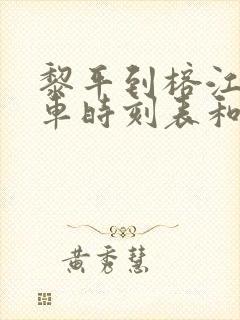 黎平到榕江
車時刻表和
黄秀慧